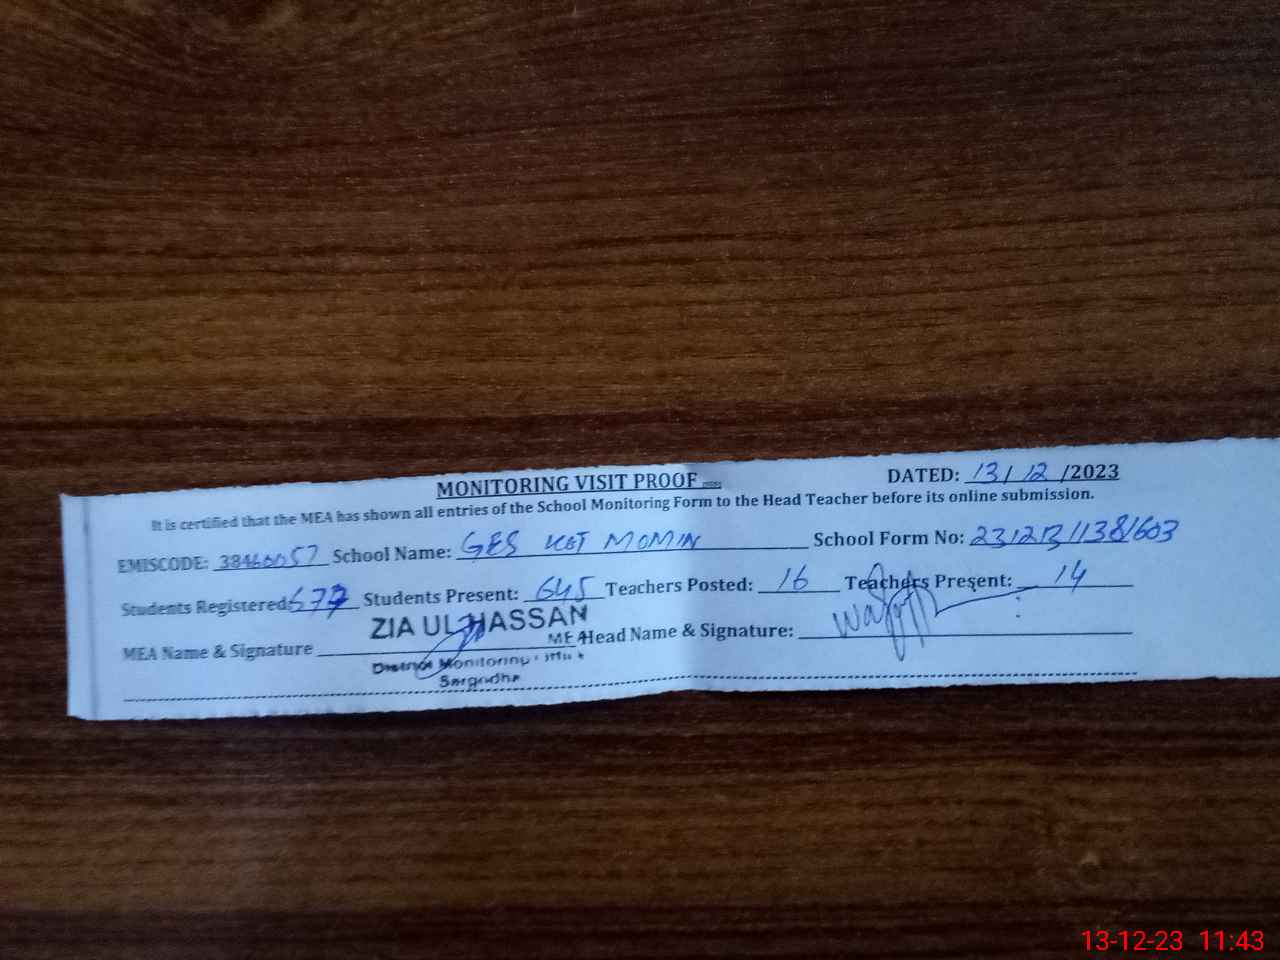 MONITORING VISIT PROOF
DATED: 13/12/2023
It is certified that the MEA has shown all entries of the School Monitoring Form to the Head Teacher before its online submission.
EMISCODE: 38460057 School Name: GES KOT MOMIN School Form No:
Students Registered: 677 Students Present: 645 Teachers Posted: 16 Teachers Present: 14
ZIA UL HASSAN
MEA Name & Signature MEA Head Name & Signature:
District Monitoring
Sargodha
13-12-23 11:43